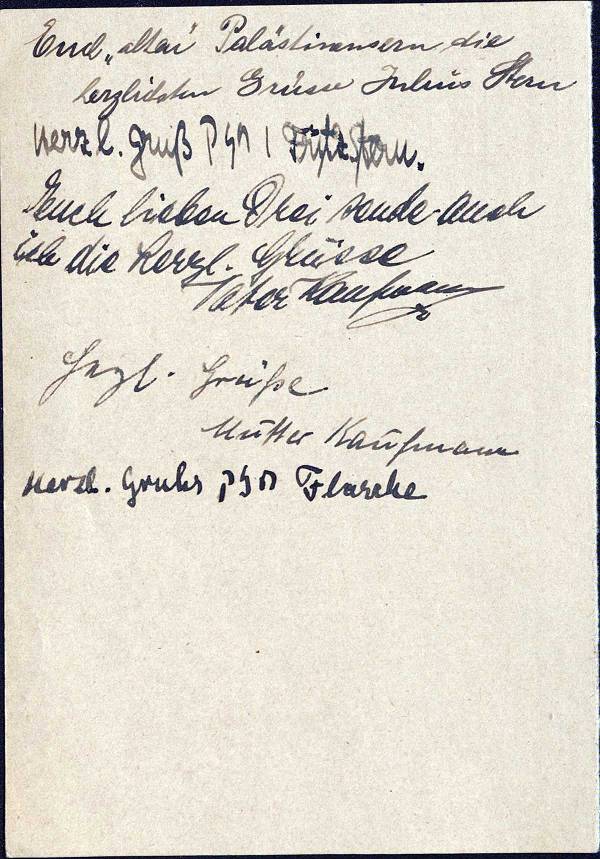 Euch „alten“ Palästinensern, die
herzlichsten Grüsse Julius Stern
Herzl. Gruß חזק! Fritz Stern.
Euch lieben Drei sende auch
ich die herzl. Grüsse
Vater Kaufmann
Herzl. Grüße
Mutter Kaufmann
Herzl. Gruhs חזק